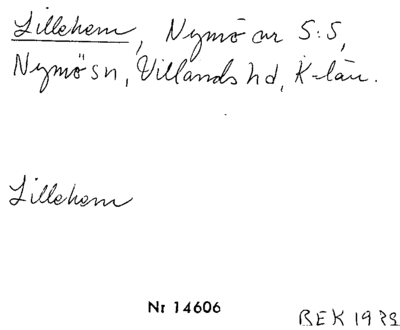 Lillehem, Nymö nr 5:5,
Nymö sn, Villands hd, K-län.
Lillehem
Nr 14606
BEK 1933